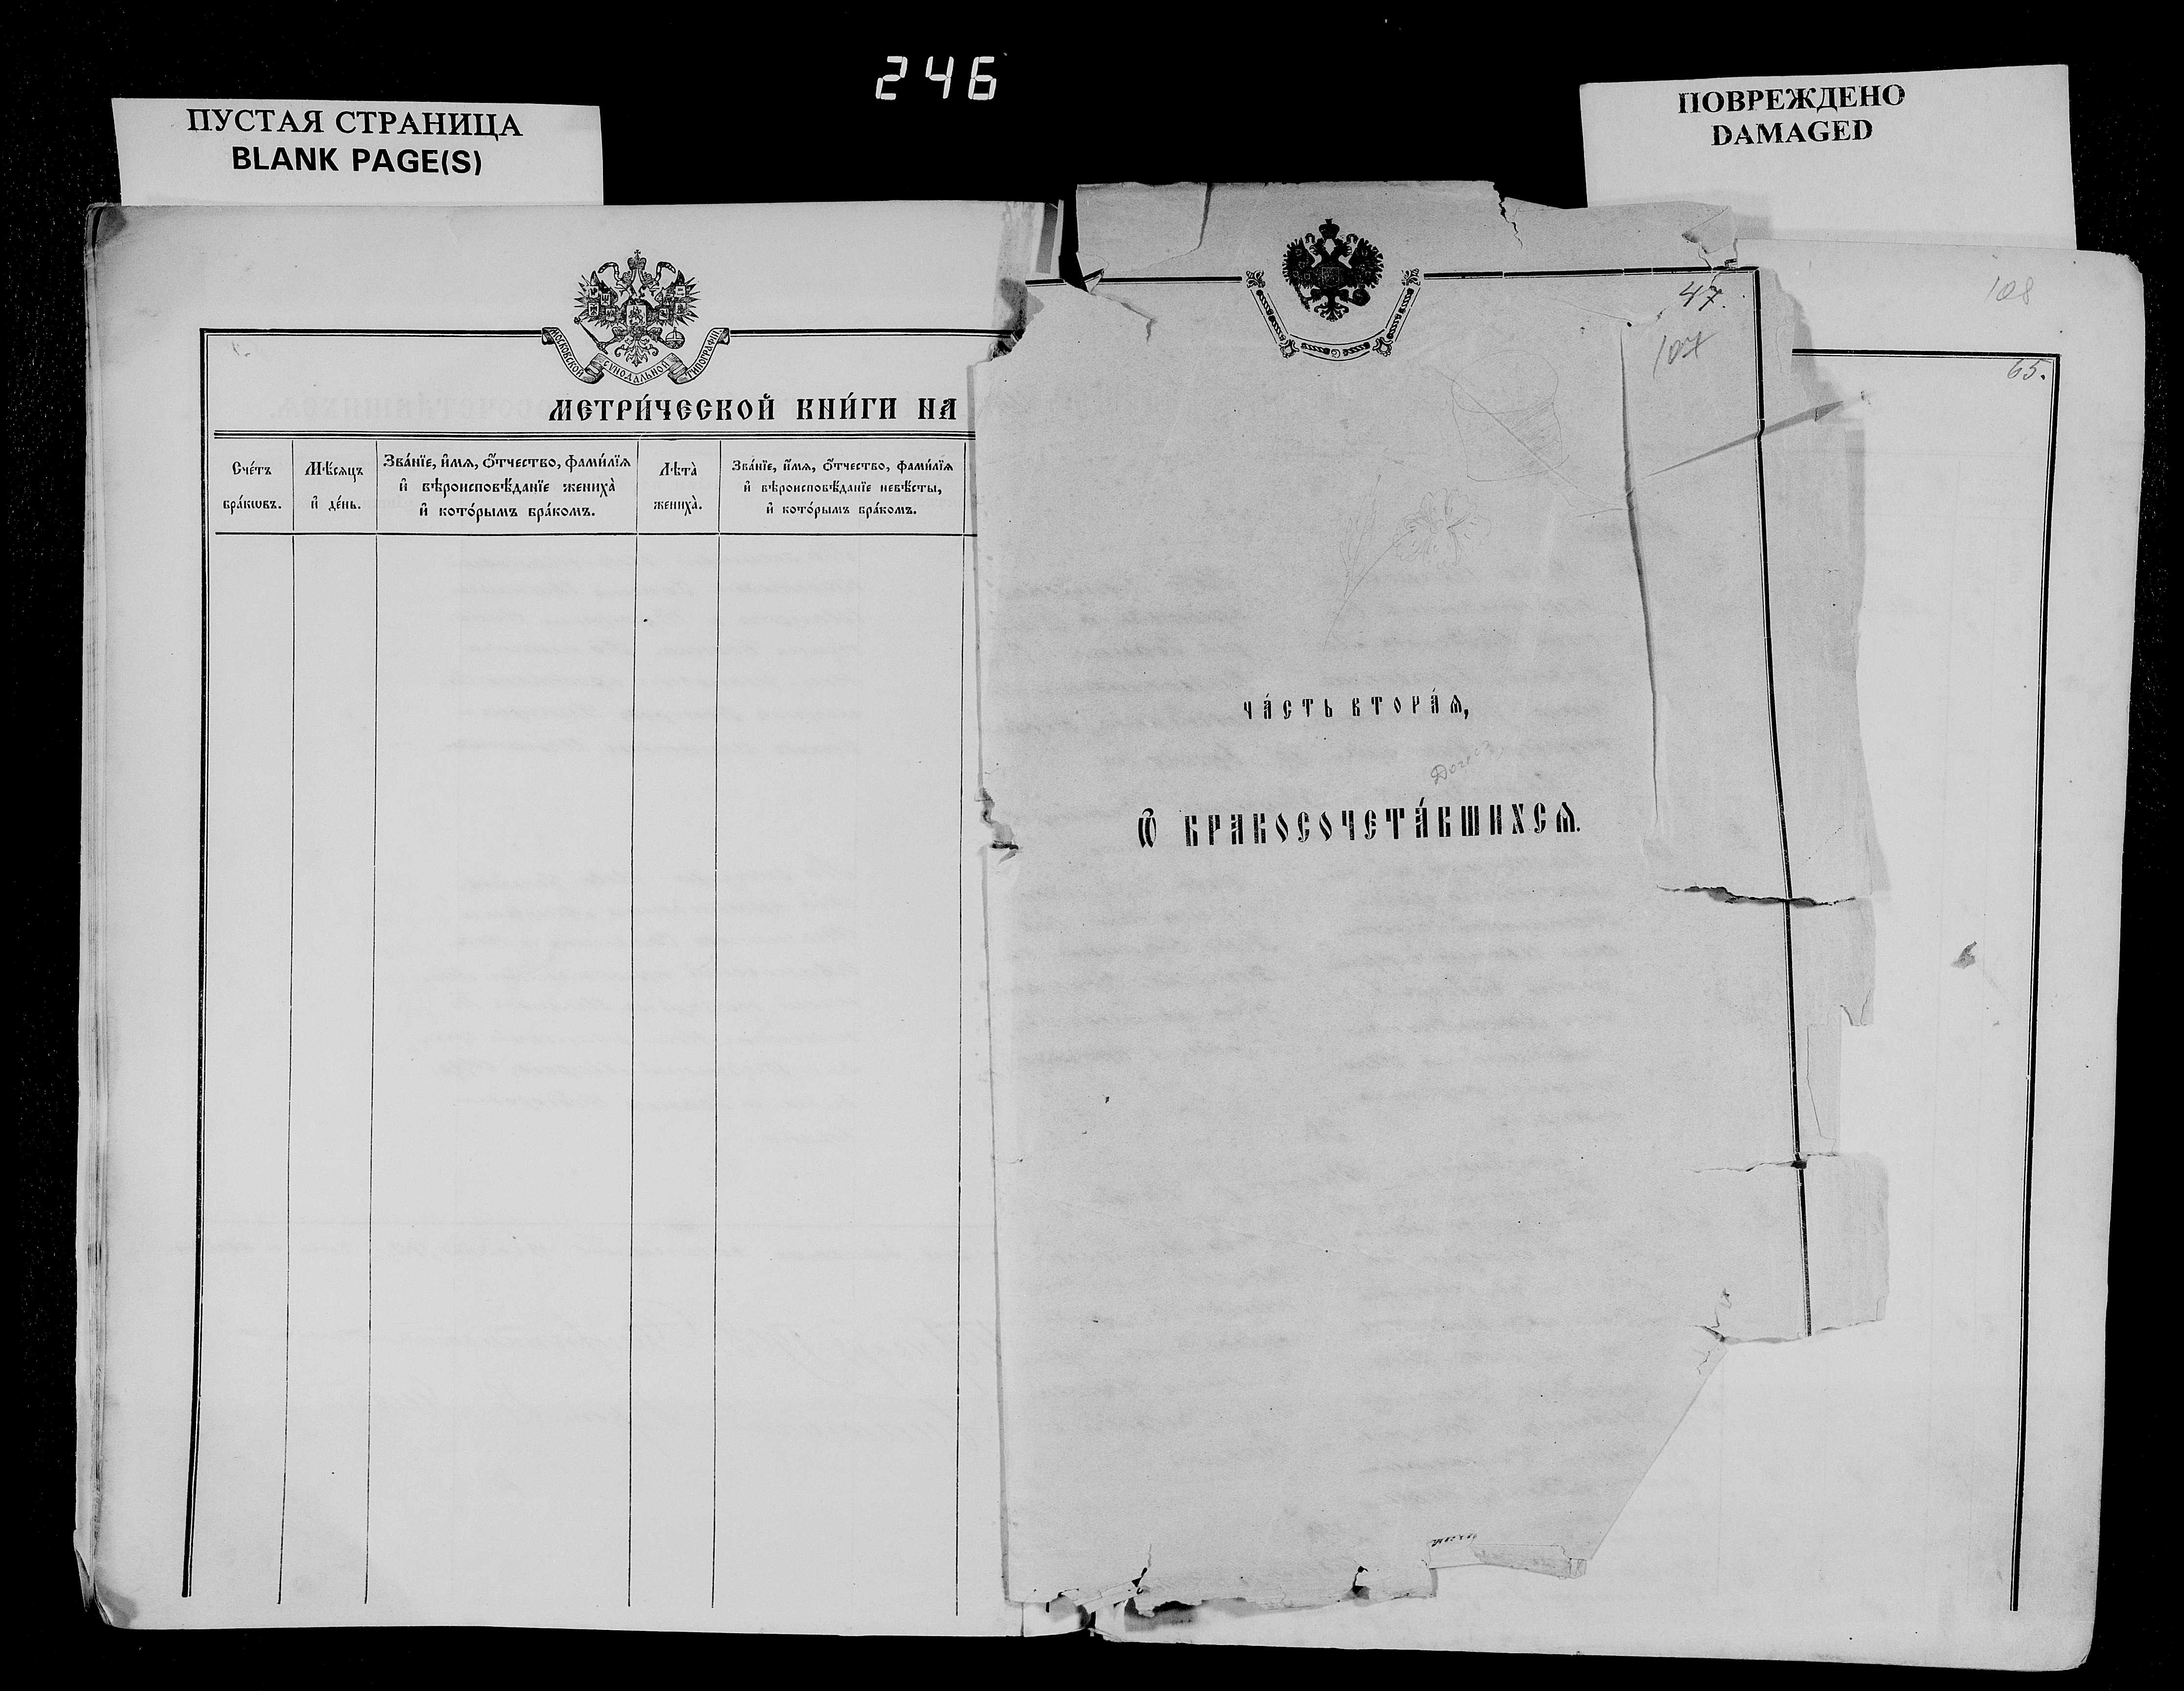 246
ПУСТАЯ СТРАНИЦА
BLANK PAGE(S)
ПОВРЕЖДЕНО
DAMAGED
МОСКОВСКОЙ СѴНОДАЛЬНОЙ ТИПОГРАФІИ
МЕТРИ́ЧЕСКОЙ КНИ́ГИ НА
Сче́тъ
бра́кѡвъ.
Мѣ́сяцъ
и҆ де́нь.
Зва́нїе, и҆́мѧ, ѻ҆́тчество, фами́лїѧ
и҆ вѣроисповѣ́данїе жениха̀
и҆ кото́рымъ бра́комъ.
Лѣта̀
жениха̀.
Зва́нїе, и҆́мѧ, ѻ҆́тчество, фами́лїѧ
и҆ вѣроисповѣ́данїе невѣ́сты,
и҆ кото́рымъ бра́комъ.
47.
107
108
65.
ЧА́СТЬ ВТОРА́Ѧ,
Ѽ БРАКОСОЧЕТА́ВШИХСѦ.